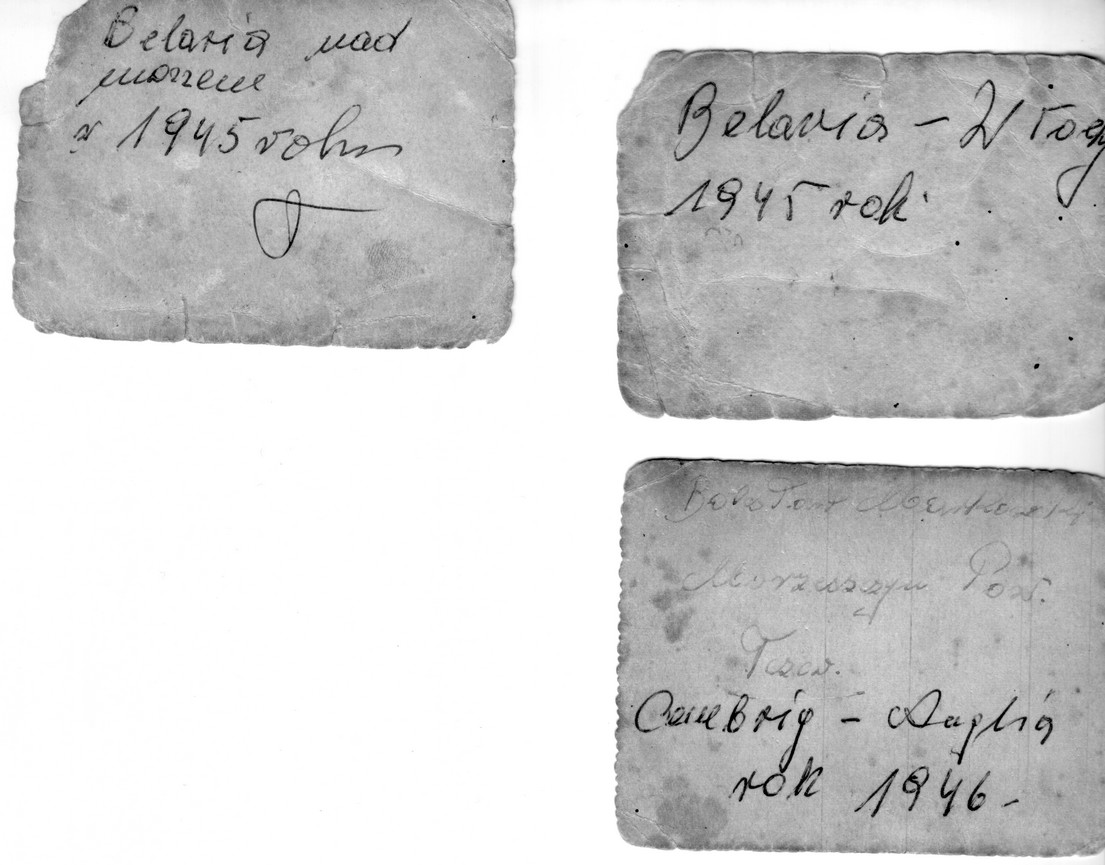 Belaria nad
morzem
w 1945 roku
Belaria –
1945 rok
Morzeszczyn Pow.
Tczew.
Cambrig – Anglia
rok 1946 -